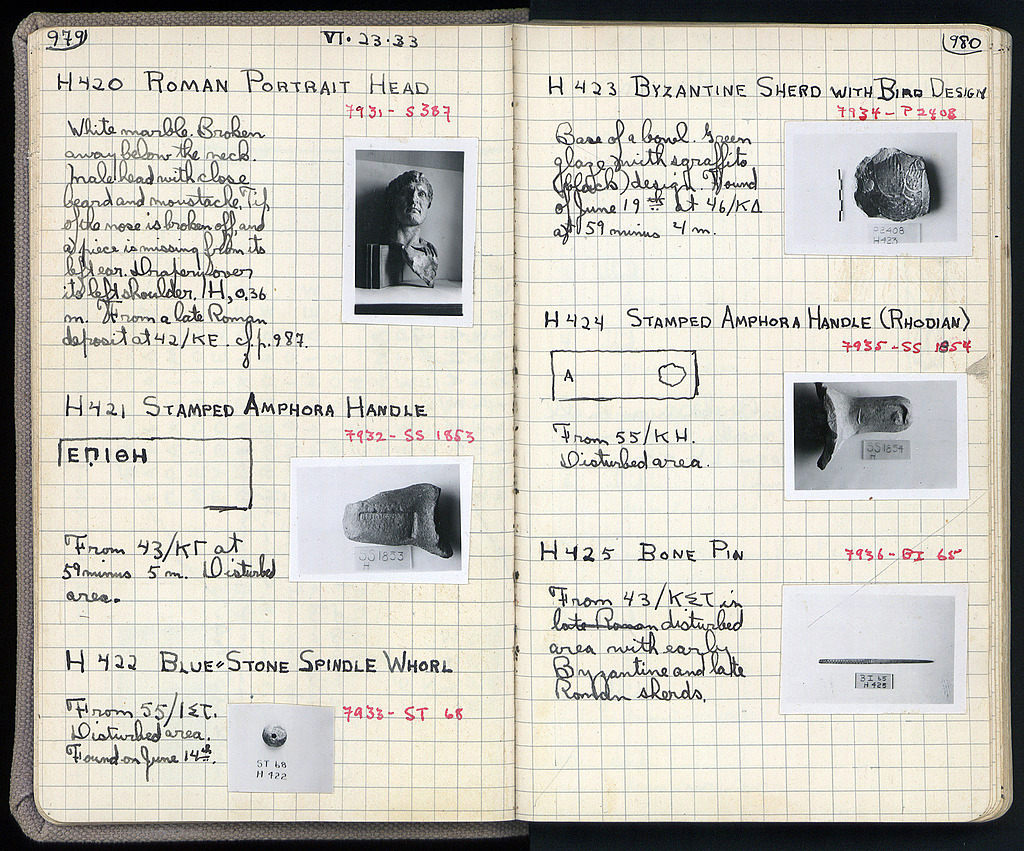 979
VI·23·33
H 420 ROMAN PORTRAIT HEAD
7931- S 387
White marble. Broken
away below the neck.
Male head with close
beard and moustache. Tip
of the nose is broken off, and
a piece is missing from its
left ear. Drapery over
its left shoulder. H, 0,36
m. From a late Roman
deposit at 42/ΚΕ. cf. p. 987.
H 421 STAMPED AMPHORA HANDLE
7932- SS 1853
ΕΠΙΘΗ
SS 1853
H
From 43/ΚΓ at
59 minus 5 m. Disturbed
area.
H 422 BLUE-STONE SPINDLE WHORL
7933- ST 68
From 55/ΙΣΤ.
Disturbed area.
Found on June 14th.
ST 68
H 422
980
H 423 BYZANTINE SHERD WITH BIRD DESIGN
7934- P 2408
Base of a bowl. Green
glaze with sgraffito
(black) design. Found
of June 19th at 46/ΚΔ
at 59 minus 4 m.
P2408
H423
H 424 STAMPED AMPHORA HANDLE (RHODIAN)
7935-SS 1854
A
From 55/ΚΗ.
Disturbed area.
SS1854
H
H 425 BONE PIN
7936- BI 65
From 43/ΚΣΤ in
late Roman disturbed
area with early
Byzantine and late
Roman sherds.
BI 65
H 425